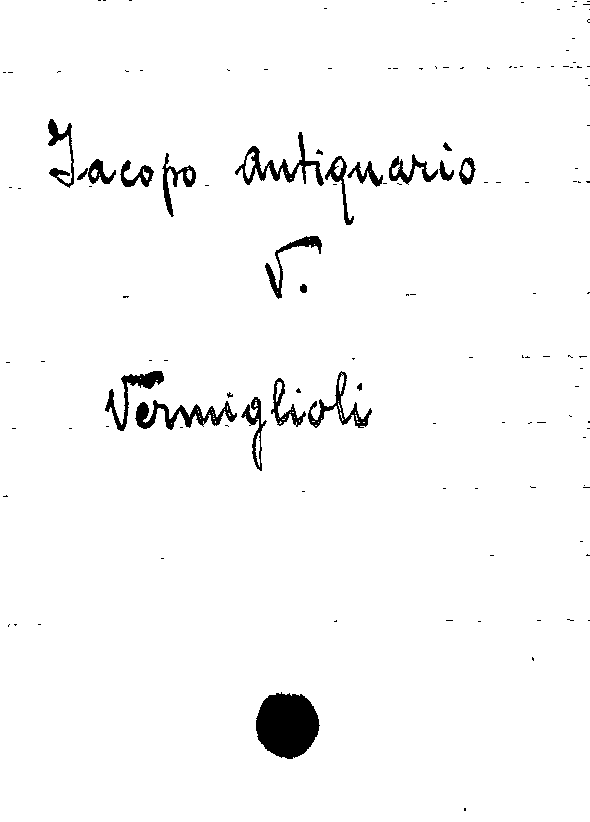 Jacopo Antiquario
V.
Vermiglioli